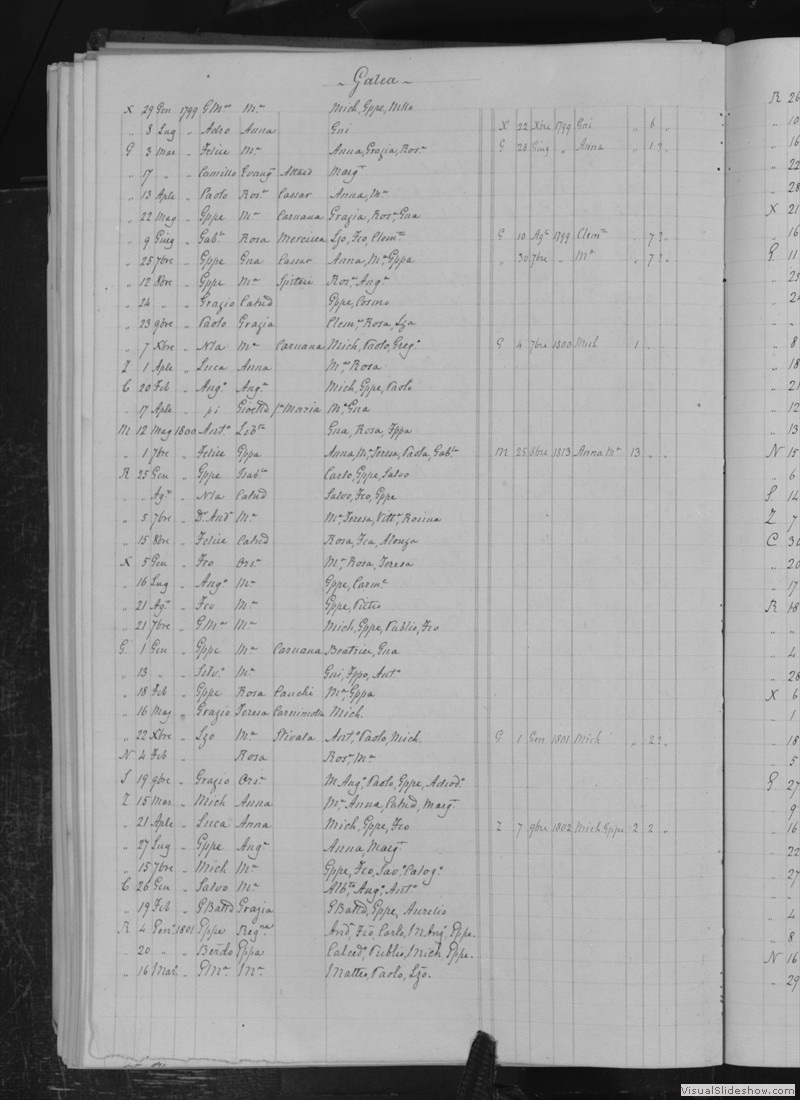 ~ Galea ~
X 29 Gen 1799 G.Mᵃ Mᵃ Mich, Gppe, Nllo
„ 3 Lug „ Adeo Anna Gni X 22 Xbre 1799 Gni „ 6 „
G 3 Mar „ Felice Mᵃ Anna, Grazia, Rosᵃ G 28 Giug „ Anna „ 1? „
„ 17 „ „ Camillo Evangᵗ Attard Margᵗ
„ 13 Aple „ Paolo Rosᵃ Cassar Anna, Mᵃ
„ 22 Mag „ Gppe Mᵃ Caruana Grazia, Rosᵃ, Gna
„ 9 Giug „ Gabˡᵉ Rosa Mercieca Lzo, Fco, Clemᵗᵉ G 10 Agᵗ 1799 Clemᵗᵉ „ 7? „
„ 25 7bre „ Gppe Gna Cassar Anna, Mᵃ, Gppa „ 30 7bre „ Mᵃ „ 7? „
„ 12 8bre „ Gppe Mᵃ Spiteri Rosᵃ, Angᵃ
„ 24 „ „ Grazio Catud Gppe, Cosmo
„ 23 9bre „ Paolo Grazia Clemᵃ, Rosa, Lza
„ 7 Xbre „ Nla Mᵃ Caruana Mich, Paolo, Gregᵒ G 4 7bre 1800 Mich 1 „
Z 1 Aple „ Luca Anna Mᵃ, Rosa
C 20 Feb „ Angᵒ Angᵃ Mich, Gppe, Paolo
„ 17 Aple „ Maria Mᵃ, Gna
M 12 Mag 1800 Antᵒ Libᵗᵃ Gna, Rosa, Fppa
„ 1 7bre „ Felice Gppa Anna, Mᵃ, Teresa, Paola, Gabˡᵃ M 25 8bre 1813 Anna Mᵃ 13 „
R 25 Gen „ Gppe Isabˡᵃ Carlo, Gppe, Salvo
„ „ Agᵗ „ Nla Catud Salvo, Fco, Gppe
„ 5 7bre „ Dʳ And Mᵃ Mᵃ, Teresa, Vittᵃ, Rosina
„ 15 8bre „ Felice Catud Rosa, Fca, Alonza
X 5 Gen „ Fco Orsᵃ Mᵃ, Rosa, Teresa
„ 16 Lug „ Angᵒ Mᵃ Gppe, Carmᵉ
„ 21 Agᵗ „ Fco Mᵃ Gppe, Pietro
„ 21 7bre „ G.Mᵃ Mᵃ Mich, Gppe, Publio, Fco
G 1 Gen „ Gppe Mᵃ Caruana Beatrice, Gna
„ 13 „ „ Silvᵒ Mᵃ Gni, Fppo, Antᵒ
„ 18 Feb „ Gppe Rosa Cauchi Mᵃ, Gppa
„ 16 Mag „ Grazio Teresa Mich.
„ 22 Xbre „ Lzo Mᵃ Stivala Antᵒ, Paolo, Mich. G 1 Gen 1801 Mich „ 2? „
N 4 Feb „ Rosa Rosᵃ, Mᵃ
S 19 9bre „ Grazio Orsᵃ M. Angᵒ, Paolo, Gppe, Adeodᵒ
Z 15 Mar „ Mich Anna Mᵃ, Anna, Catud, Margᵗ
„ 21 Aple „ Luca Anna Mich, Gppe, Fco Z 7 9bre 1802 Mich Gppe 2 2 „
„ 27 Lug „ Gppe Angᵃ Anna, Margᵗ
„ 15 7bre „ Mich Mᵃ Gppe, Fco, Savᵒ, Calogᵒ
C 26 Gen „ Salvo Mᵃ Albᵗᵒ, Angᵒ, Antᵒ
„ 19 Feb „ GBattᵃ Grazia GBattᵃ, Gppe, Aurelio
R 4 Genᵒ 1801 Gppe Regᵃ And, Fco, Carlo, M.Angᵒ, Gppe.
„ 20 „ „ Berdo Gppa Calcedᵒ, Publio, Mich, Gppe.
„ 16 Mar. „ G.Mᵃ Mᵃ Matteo, Paolo, Lzo.
R 26
„ 10
„ 16
„ 22
„ 28
X 21
„ 16
G 11
„ 25
„ 24
„ 8
„ 18
„ 21
„ 12
„ 13
N 15
„ 6
S 14
Z 7
C 30
„ 20
„ 17
R 18
„ „
„ 4
„ 28
X 6
„ 1
„ 18
„ 5
G 27
„ 9
„ 16
„ 22
„ 27
„ 4
„ 8
N 16
„ 29
VisualSlideshow.com